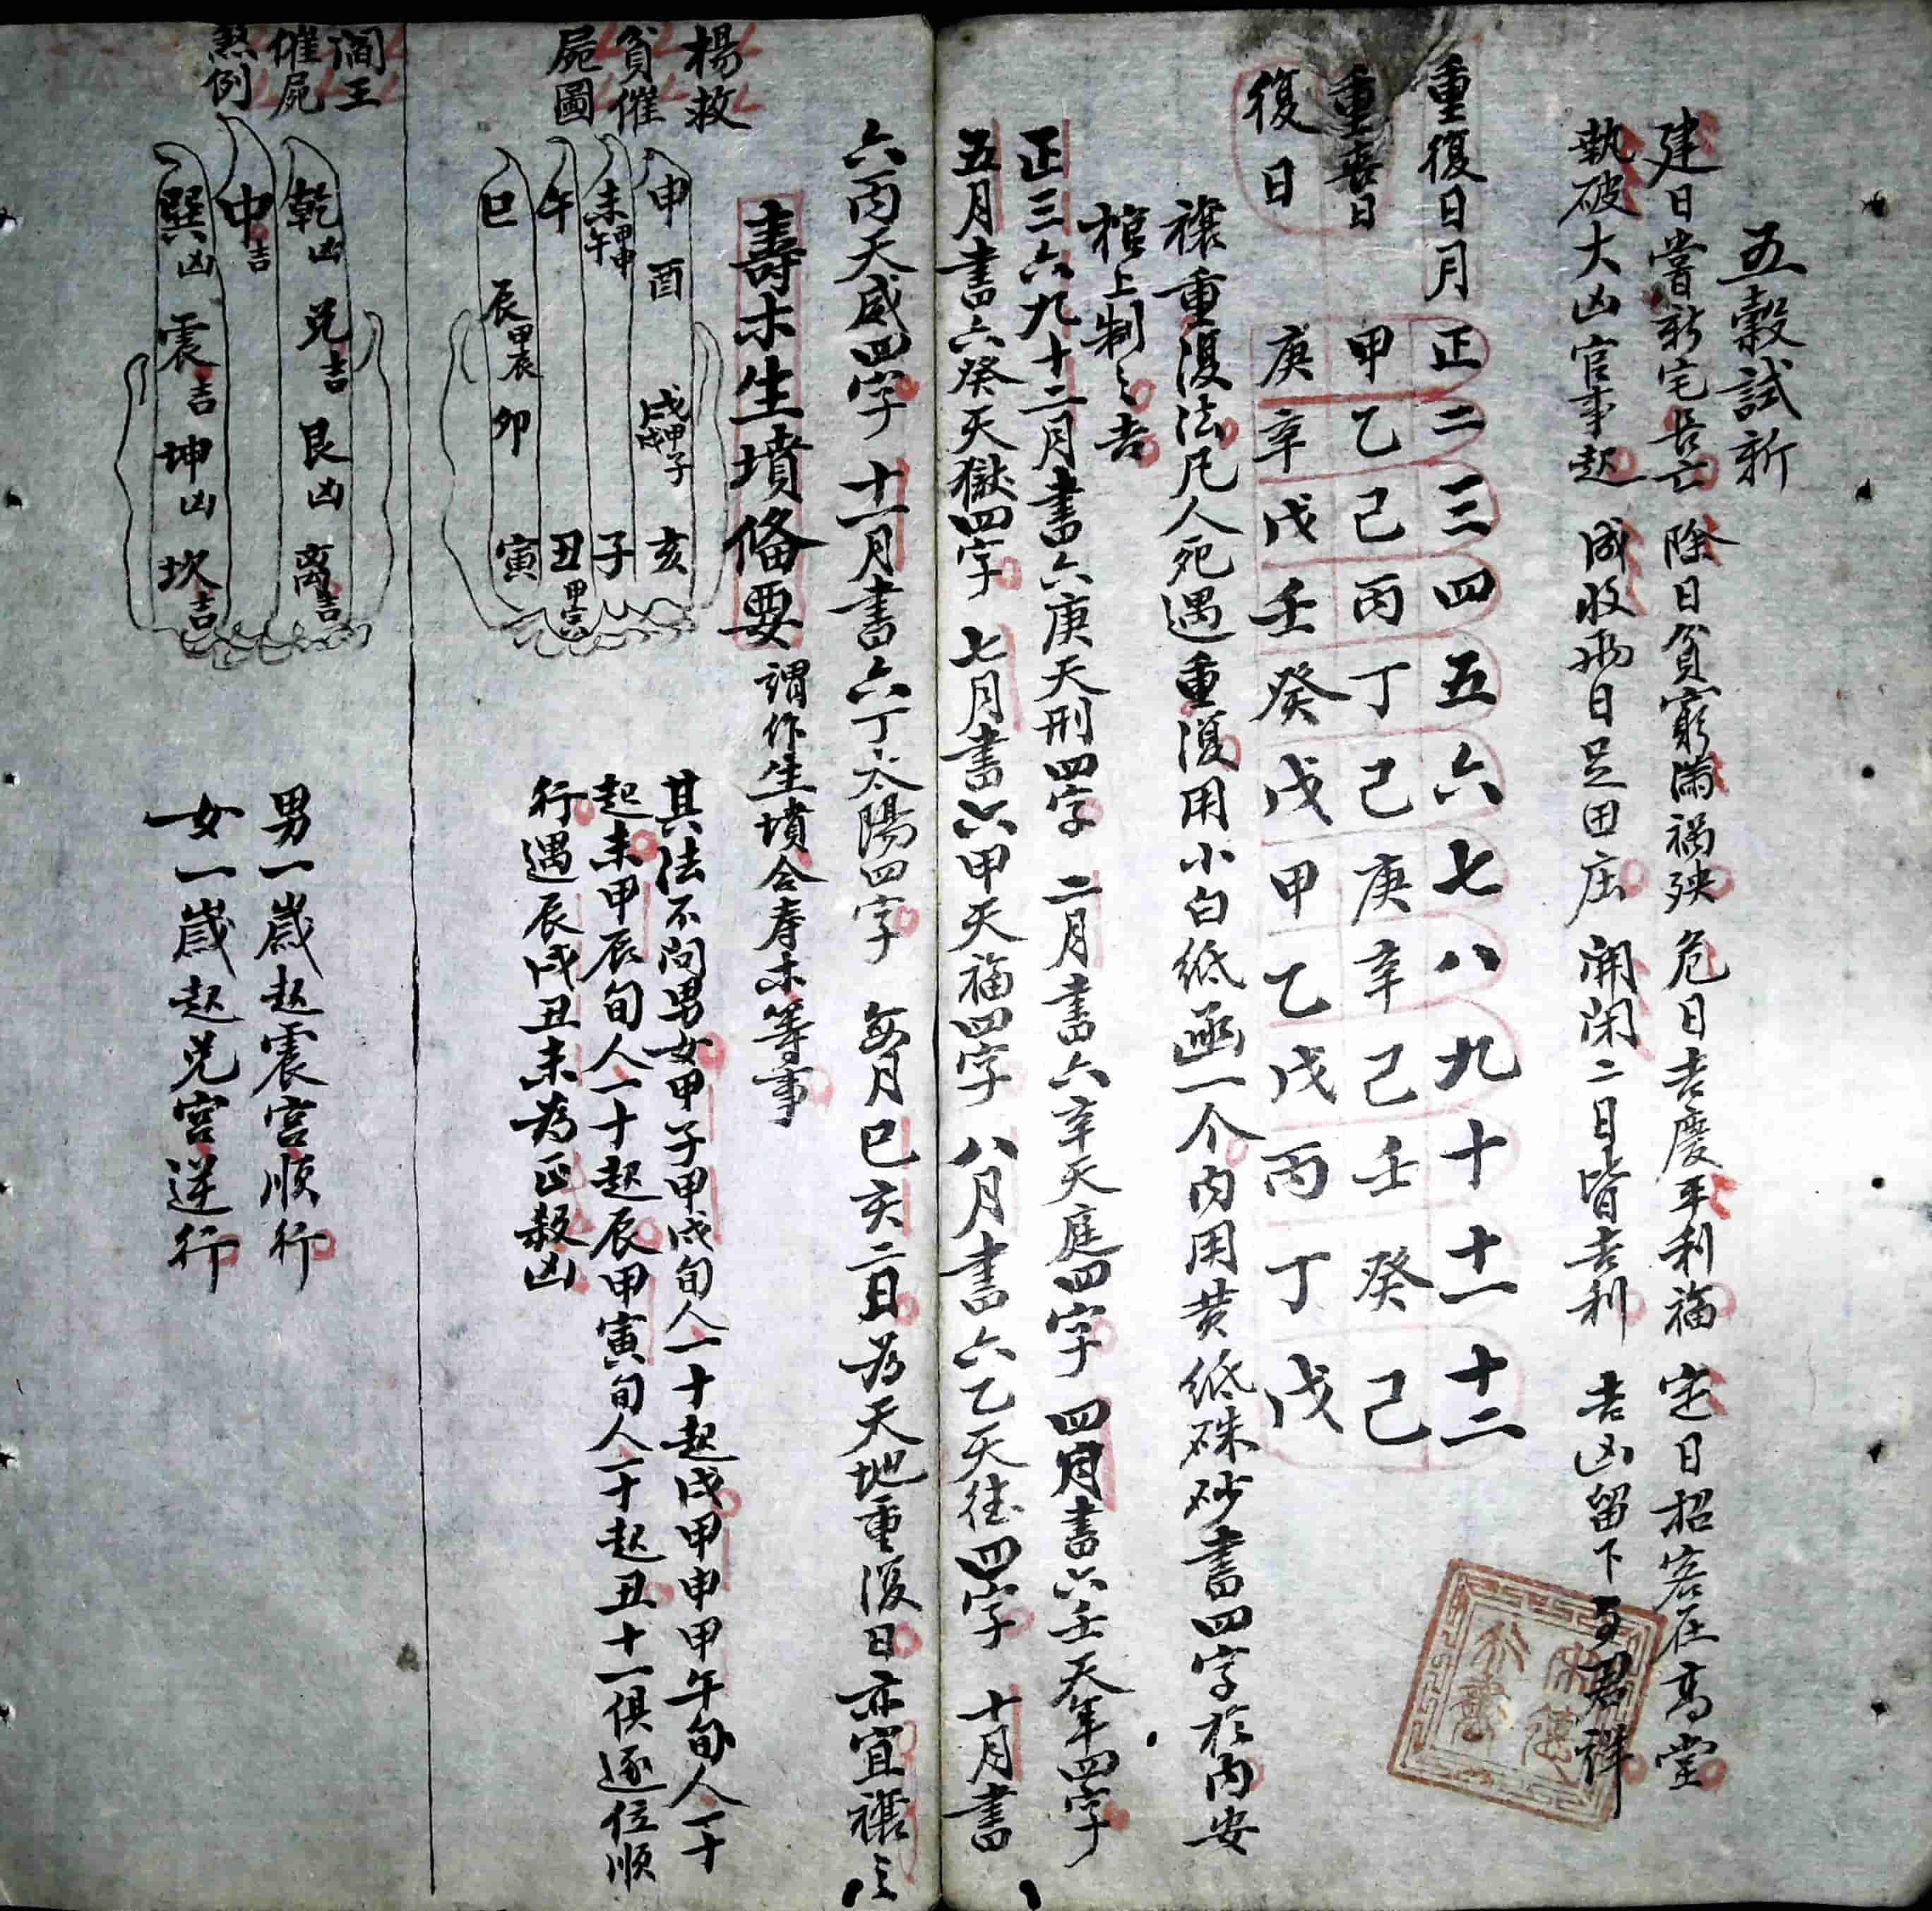 五穀試新
建日嘗新宅長亡 除日貧窮滿禍殃 危日吉慶平利福 定日招客在高堂
執破大凶官事起 成收兩日足田庄 開閉二日皆吉利 吉凶留下与君詳
重復日月 正 二 三 四 五 六 七 八 九 十 十一 十二
重喪日 甲 乙 己 丙 丁 己 庚 辛 己 壬 癸 己
復日 庚 辛 戊 壬 癸 戊 甲 乙 戊 丙 丁 戊
禳重復法凡人死遇重復用小白紙函一个内用黄紙硃砂書四字於内安
棺上制之吉
正三六九十二月書六庚天刑四字 二月書六辛天庭四字 四月書六壬天牢四字
五月書六癸天獄四字 七月書六甲天福四字 八月書六乙天德四字 十月書
六丙天威四字 十一月書六丁太陽四字 每月巳亥二日為天地重復日亦宜禳之
壽木生墳備要 謂作生墳合寿木等事
楊救
貧催
屍圖
申 酉 戌甲戌甲子 亥
未甲午甲申 子
午 丑甲寅
巳 辰甲辰 卯 寅
其法不问男女甲子甲戌旬人一十起戌甲申甲午旬人一十
起未甲辰旬人一十起辰甲寅旬人一十起丑十一俱逐位順
行遇辰戌丑未為正殺凶
閻王
催屍
煞例
乾凶 兑吉 艮凶 离吉
中吉
巽凶 震吉 坤凶 坎吉
男一歲起震宫順行
女一歲起兑宫逆行